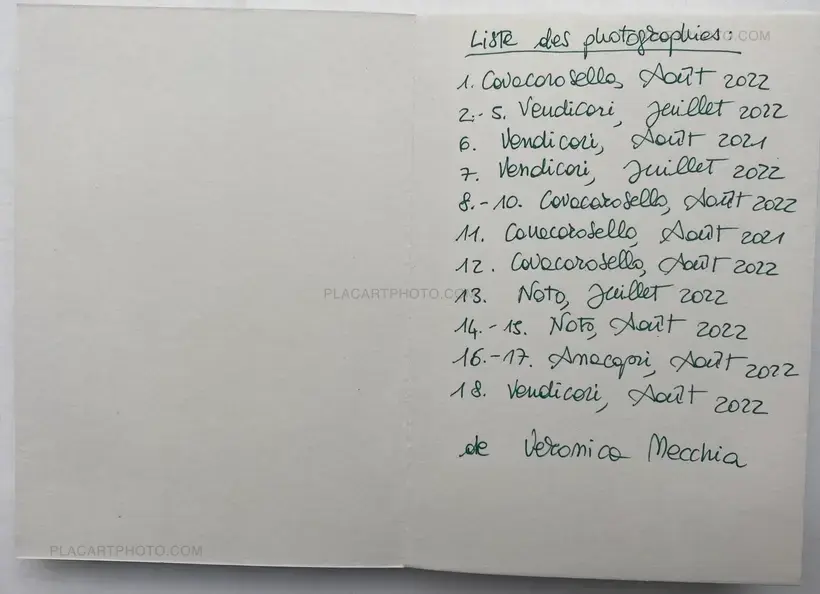 Liste des photographies:
1. Cavacarosello, Août 2022
2.- 5. Vendicari, Juillet 2022
6. Vendicari, Août 2021
7. Vendicari, Juillet 2022
8.-10. Cavacarosello, Août 2022
11. Cavacarosello, Août 2021
12. Cavacarosello, Août 2022
13. Noto, Juillet 2022
14.-15. Noto, Août 2022
16.-17. Anacapri, Août 2022
18. Vendicari, Août 2022
de Veronica Mecchia
PLACARTPHOTO.COM
PLACARTPHOTO.COM